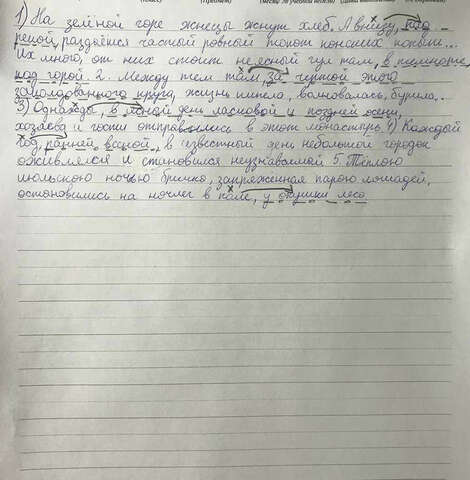 1) На зелёной горе жнецы жнут хлеб. А внизу, под
рекой, раздаётся частый ровный топот конских копыт...
Их много, от них стоит неясный гул там, в темноте,
под горой. 2. Между тем там, за чертой этого
заколдованного круга, жизнь кипела, волновалась, бурлила...
3) Однажды, в ясный день ласковой и поздней осени,
хозяева и гости отправились в этот монастырь. 4) Каждый
год, ранней весной, в известный день небольшой городок
оживлялся и становился неузнаваемой 5. Тёплою
июльскою ночью бричка, запряженная парою лошадей,
остановились на ночлег в поле, у опушки леса